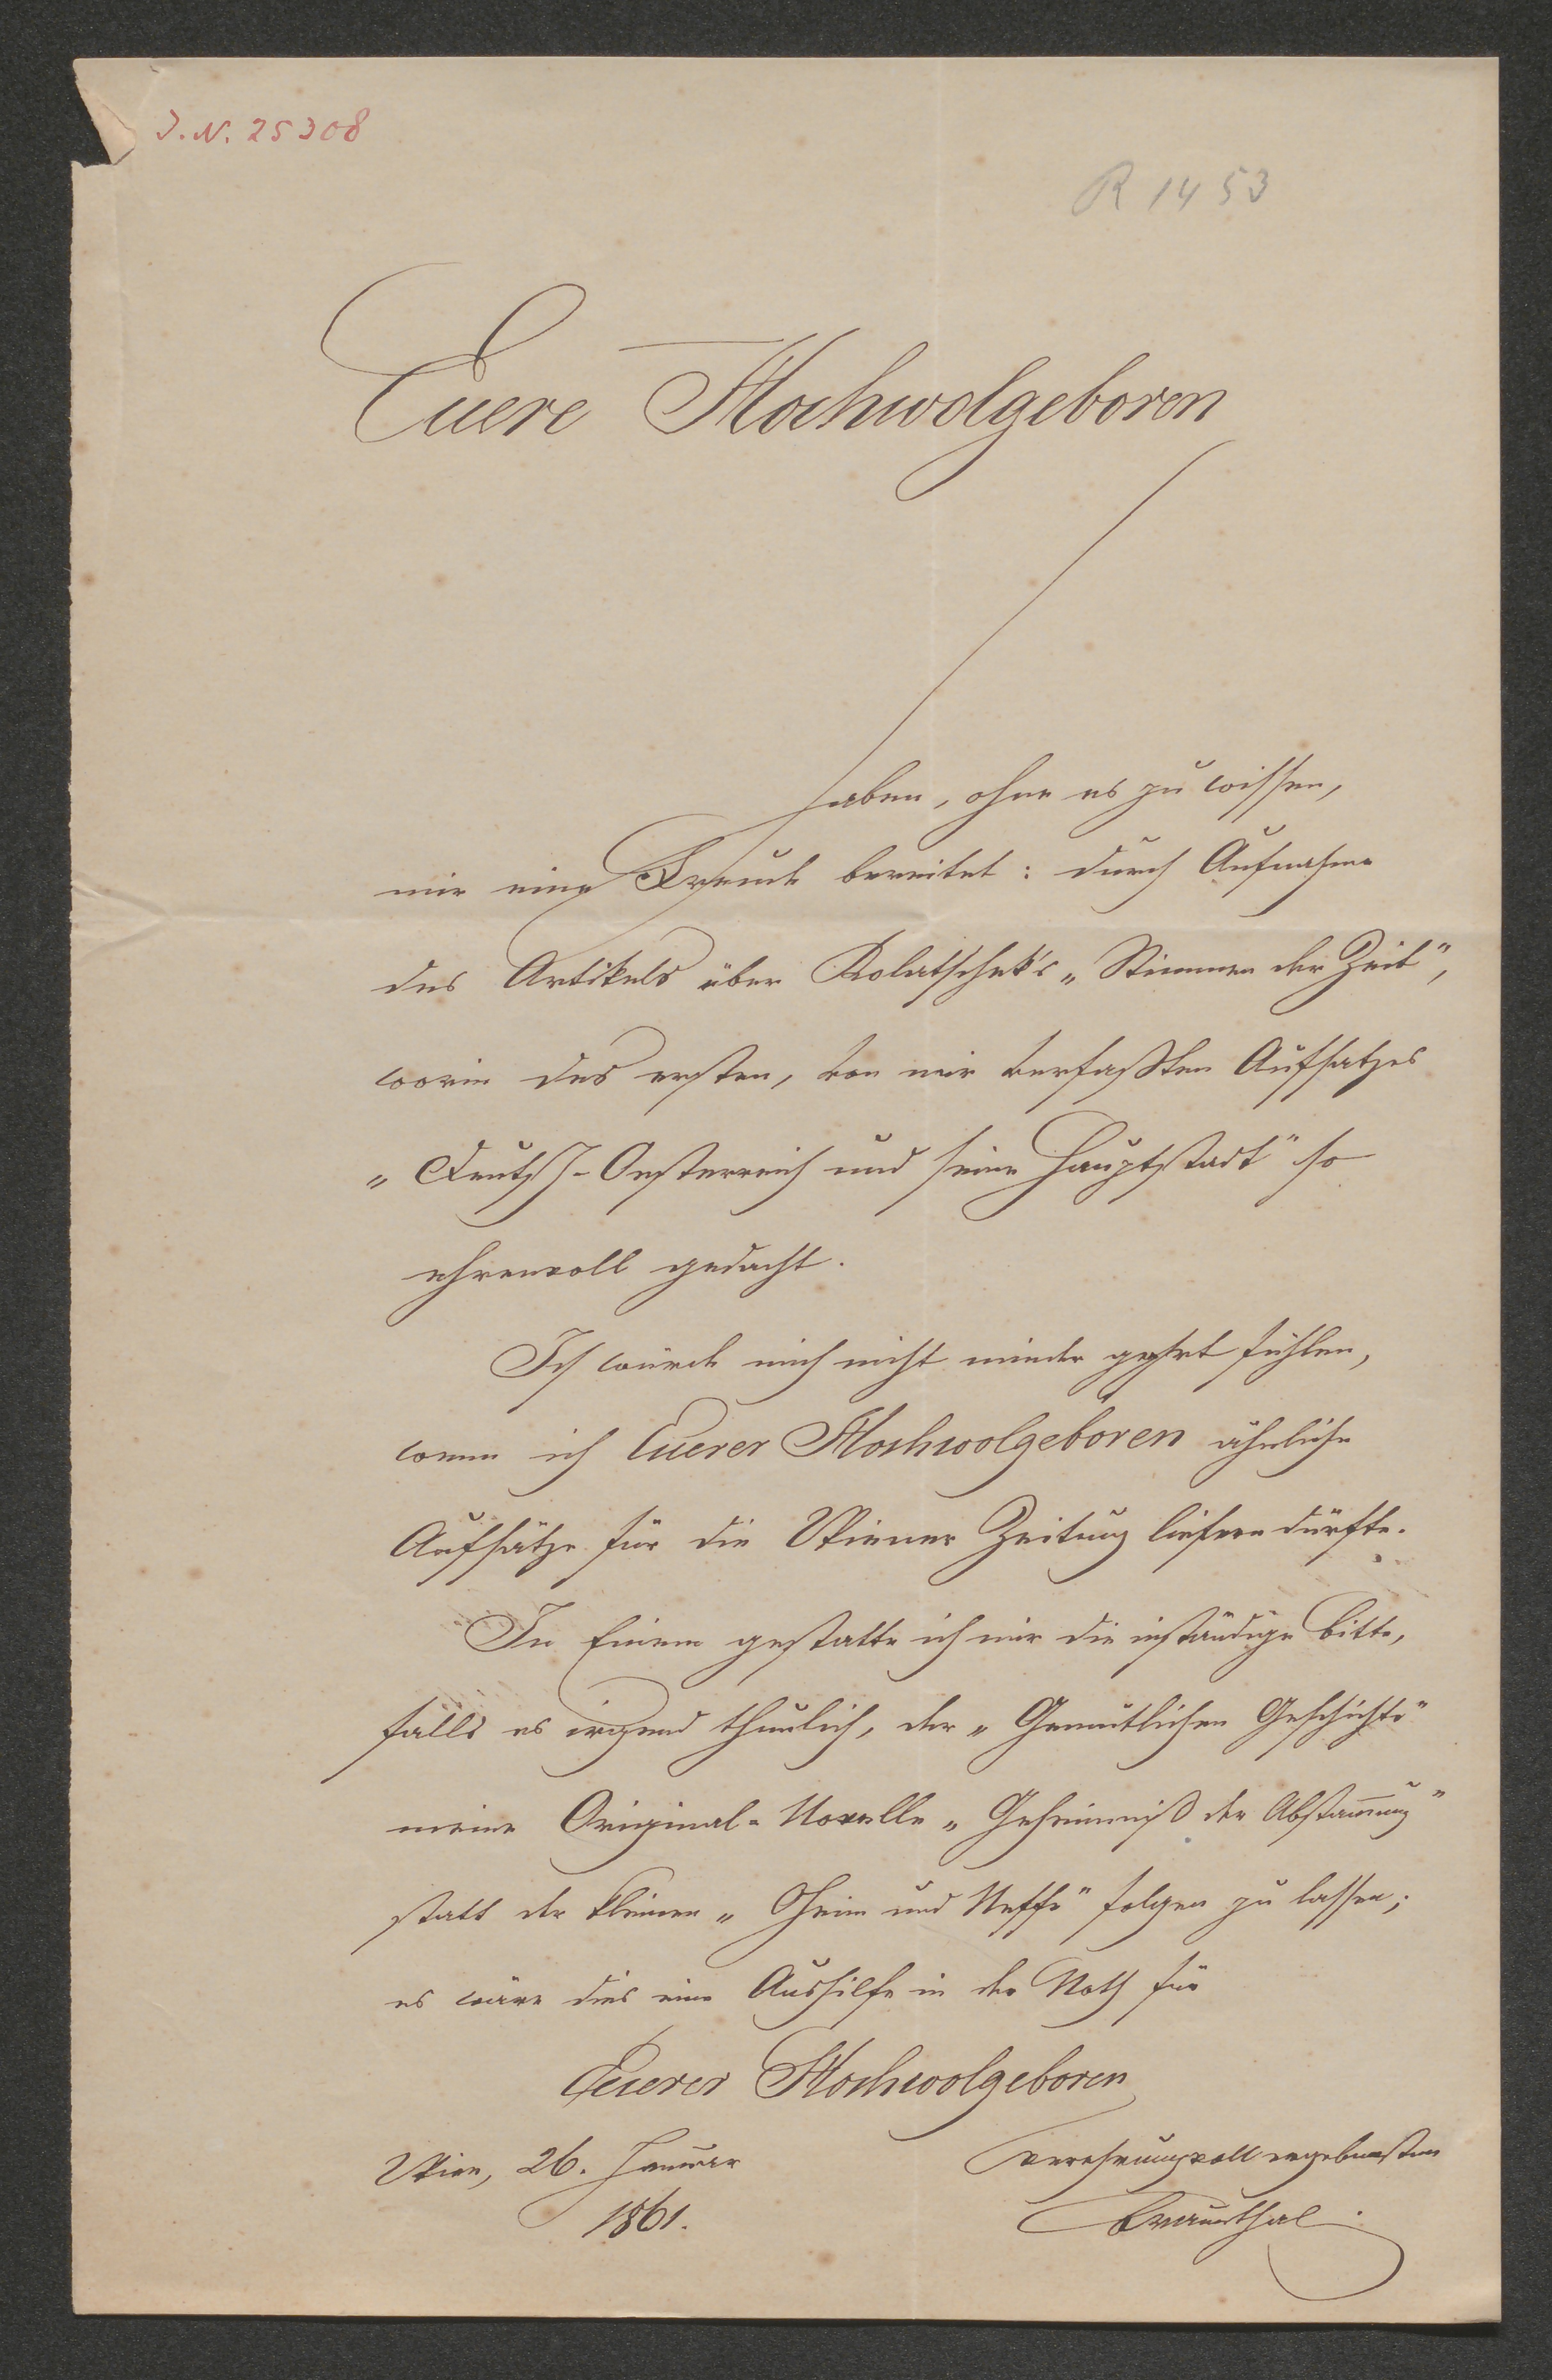 J.N. 25308
R 1453
Euere Hochwolgeboren
haben, ohne es zu wissen,
mir eine Freude bereitet: durch Aufnahme
des Artikels über Kolatschek's „Stimmen der Zeit",
worin des ersten, von mir verfaßten Aufsatzes
„Deutsch-Oesterreich und seine Hauptstadt" so
ehrenvoll gedacht.
Ich würde mich nicht minder geehrt fühlen,
wenn ich Euerer Hochwolgeboren ähnliche
Aufsätze für die Wiener Zeitung liefern dürfte.
In Einem gestatte ich mir die inständige Bitte,
falls es irgend thunlich, der „Gemütlichen Geschichte"
meine Original-Novelle „Geheimniß der Abstam̅ung"
statt der kleinen „Oheim und Neffe" folgen zu lassen;
es wäre dies eine Aushilfe in der Noth für
Euerer Hochwolgeboren
Wien, 26. Januar
1861.
verehrungsvoll ergebensten
Braunthal.